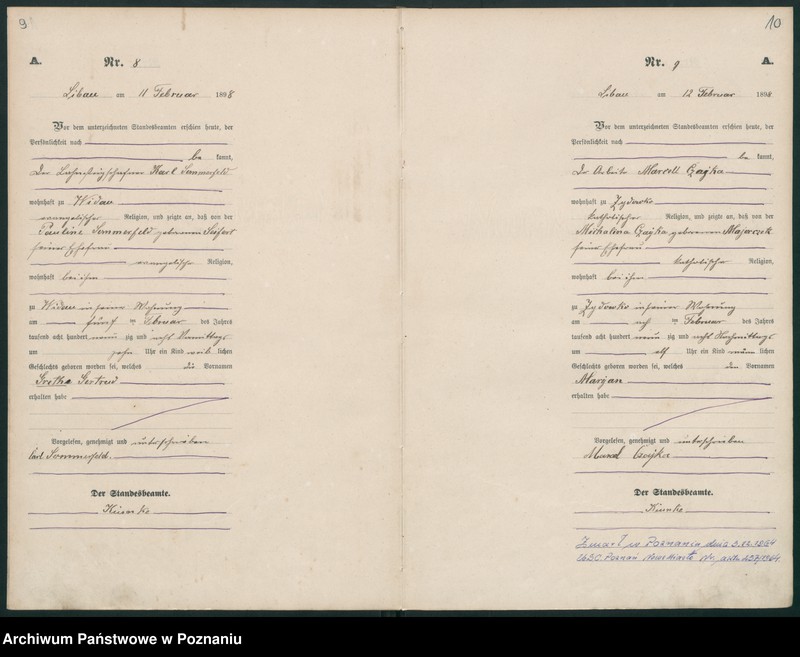 9
A.
Nr. 8
Libau am 11 Februar 1898
Vor dem unterzeichneten Standesbeamten erschien heute, der
Persönlichkeit nach
be kannt,
Der Karl Sommerfeld
wohnhaft zu Widau
evangelischer Religion, und zeigte an, daß von der
Pauline Sommerfeld geborenen
seiner Ehefrau
evangelische Religion,
wohnhaft bei ihm
zu Widau in seiner Wohnung
am fünf ten Februar des Jahres
tausend acht hundert neun zig und acht Vormittags
um zehn Uhr ein Kind weib lichen
Geschlechts geboren worden sei, welches die Vornamen
Gertrud
erhalten habe
Vorgelesen, genehmigt und unterschrieben
Carl Sommerfeld.
Der Standesbeamte.
10
Nr. 9
A.
Libau am 12 Februar 1898
Vor dem unterzeichneten Standesbeamten erschien heute, der
Persönlichkeit nach
be kannt,
Der Arbeiter Marcell Czajka
wohnhaft zu Zydowko
katholischer Religion, und zeigte an, daß von der
Michalina Czajka geborenen
seiner Ehefrau
katholische Religion,
wohnhaft bei ihm
zu Zydowko in seiner Wohnung
am ach ten Februar des Jahres
tausend acht hundert neun zig und acht Nachmittags
um elf Uhr ein Kind männ lichen
Geschlechts geboren worden sei, welches den Vornamen
Maryan
erhalten habe
Vorgelesen, genehmigt und unterschrieben
Czajka
Der Standesbeamte.
Zmarł w Poznaniu dnia
Poznań Nr. aktu
Archiwum Państwowe w Poznaniu